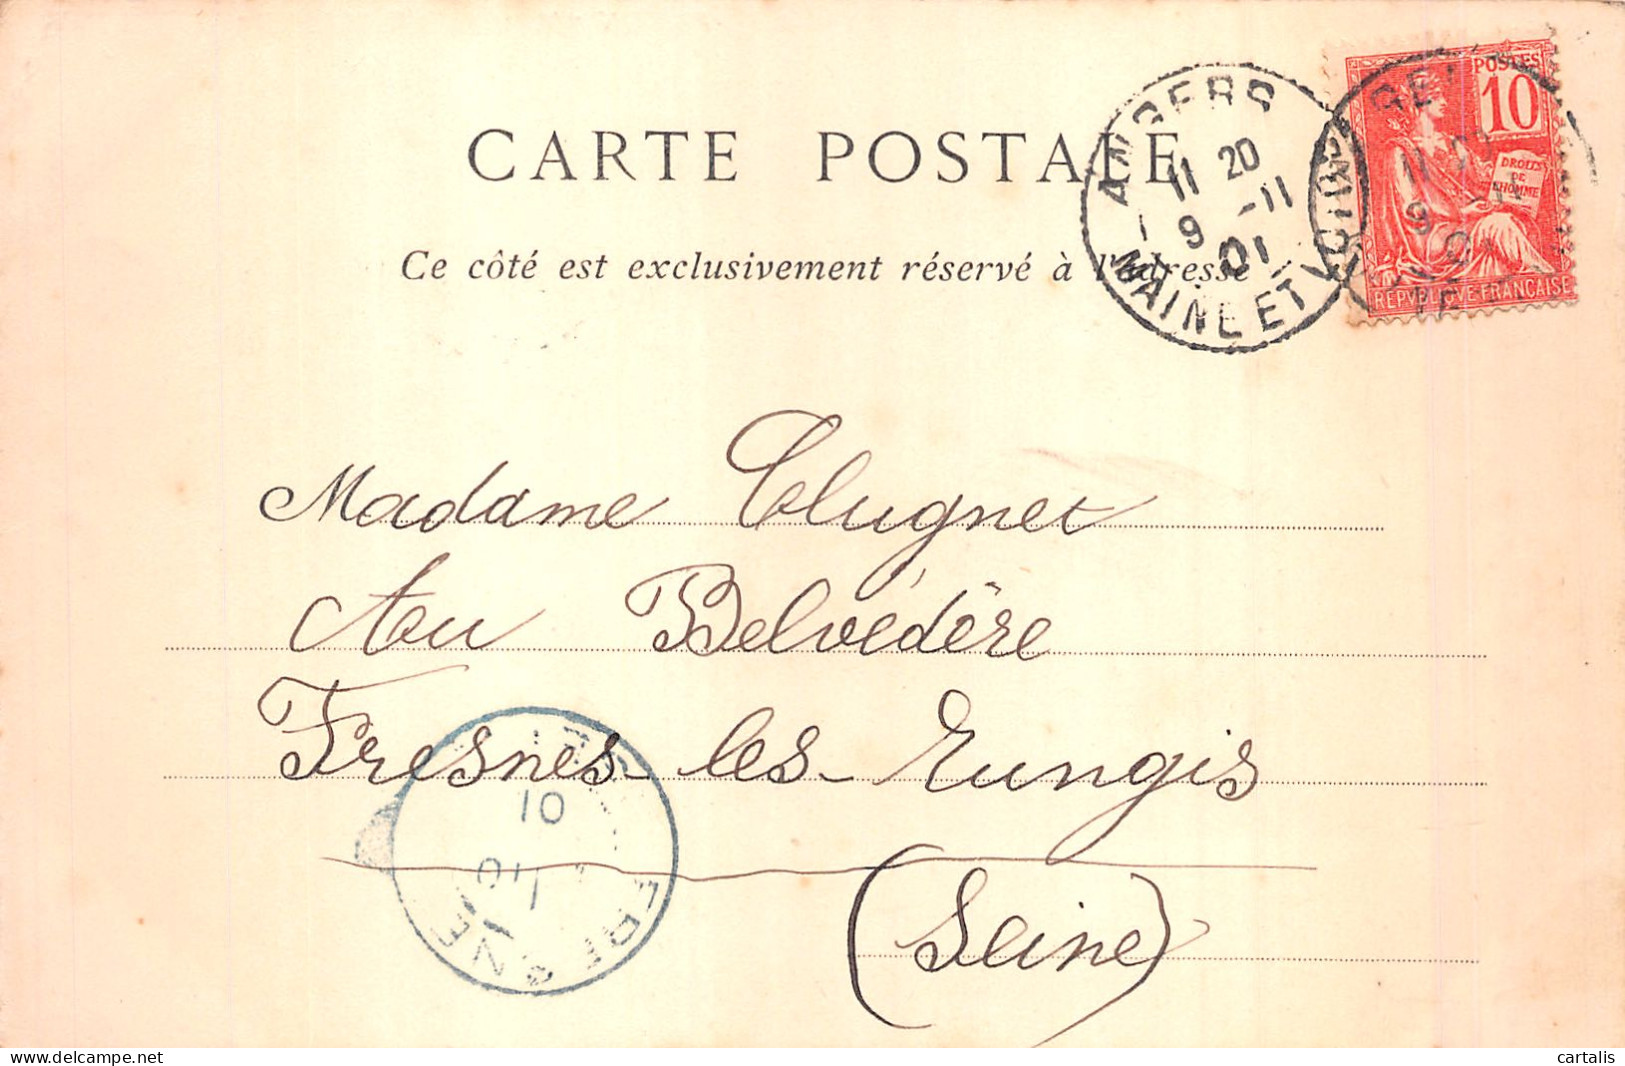 CARTE POSTALE
Ce côté est exclusivement réservé à l'adresse
ANGERS
11 20
9 -11
01
MAINE ET LOIRE
POSTES
10
DROITS
DE
L'HOMME
REPVBLIQVE FRANÇAISE
11 20
9 -11
01
Madame Clugnet
Au Belvédère
Fresnes-les-Rungis
(Seine)
01
FRESNE
cartalis